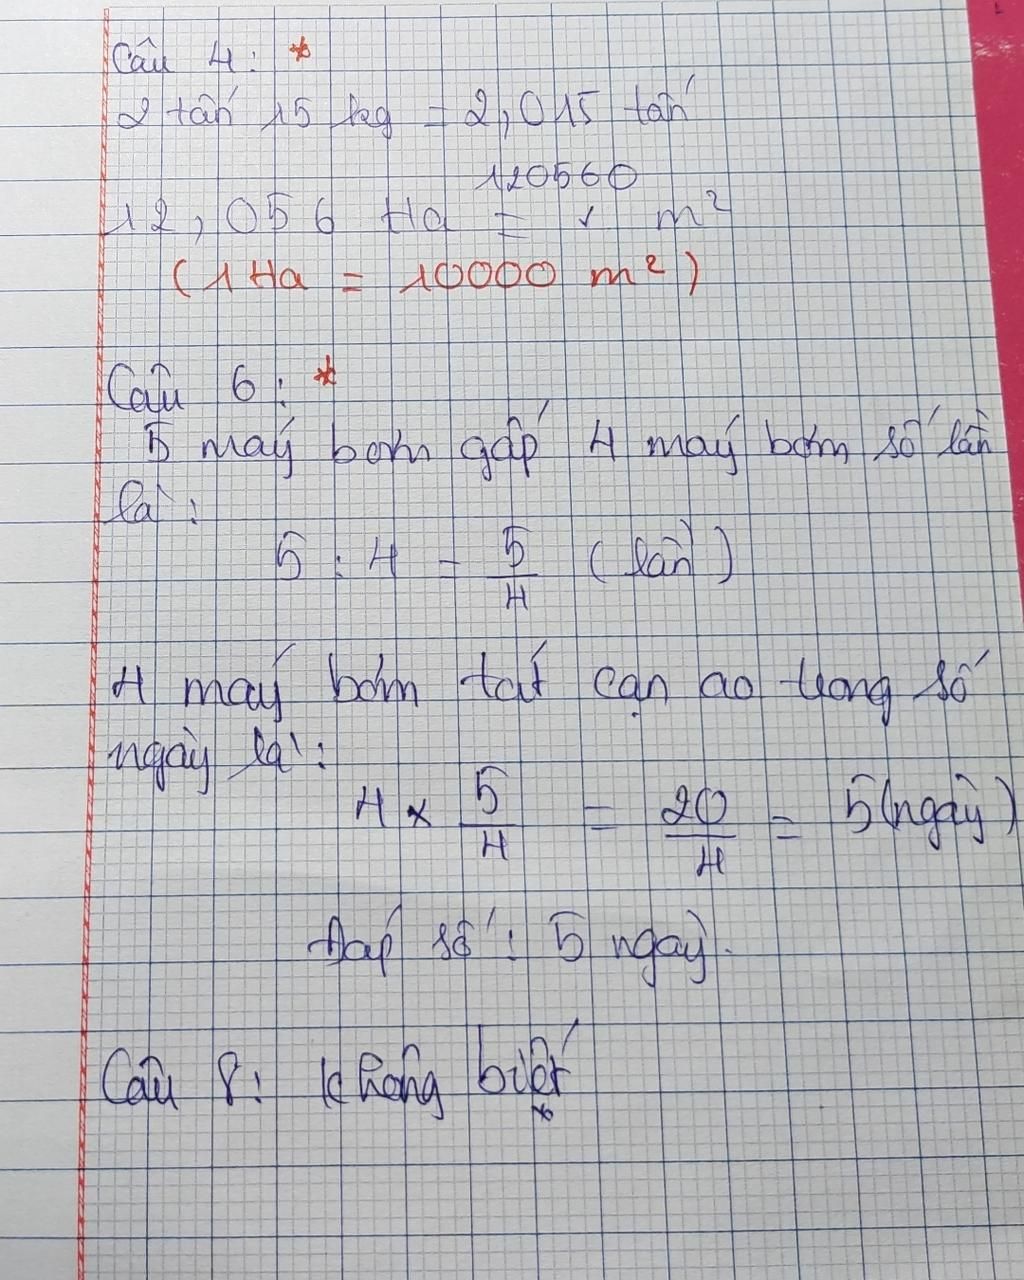 Câu 4: *
2 tấn 15 kg = 2,015 tấn
120560
12,056 Ha = m²
(1 Ha = 10000 m²)
Câu 6: *
5 máy bơm gấp 4 máy bơm số lần
là:
5 : 4 = 5/4 (lần)
4 máy bơm tát cạn ao trong số
ngày là:
4 x 5/4 = 20/4 = 5 (ngày)
Đáp số: 5 ngày.
Câu 8: không biết